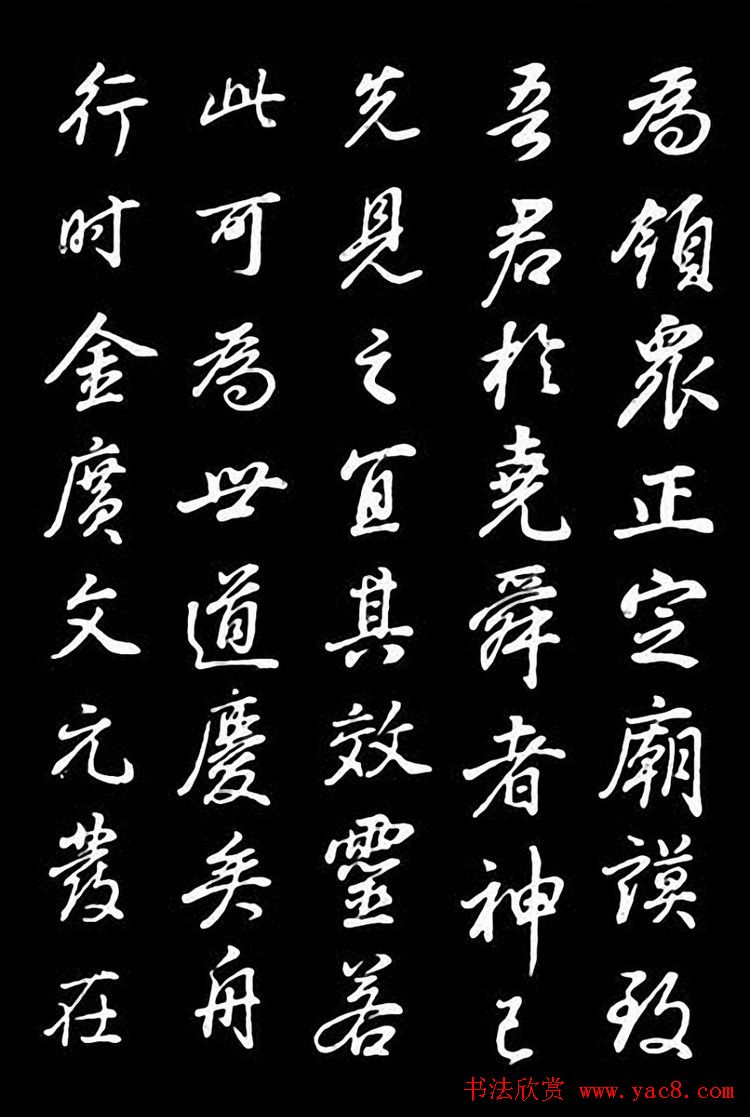 為領眾正定廟謨致
吾君於堯舜者神已
先見之宜其效靈若
此可為世道慶矣舟
行时金廣文元發在
书法欣赏 www.yac8.com